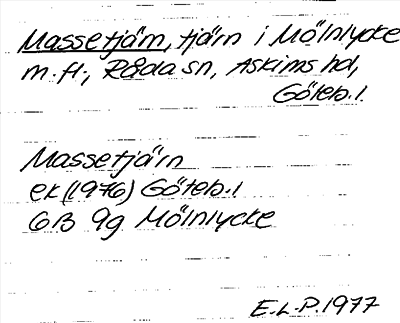 Massetjärn, tjärn i Mölnlycke
m.fl., Råda sn, Askims hd,
Göteb.l.
Massetjärn
ek (1976) Göteb.l
6B 9g Mölnlycke
E.L-P.1977